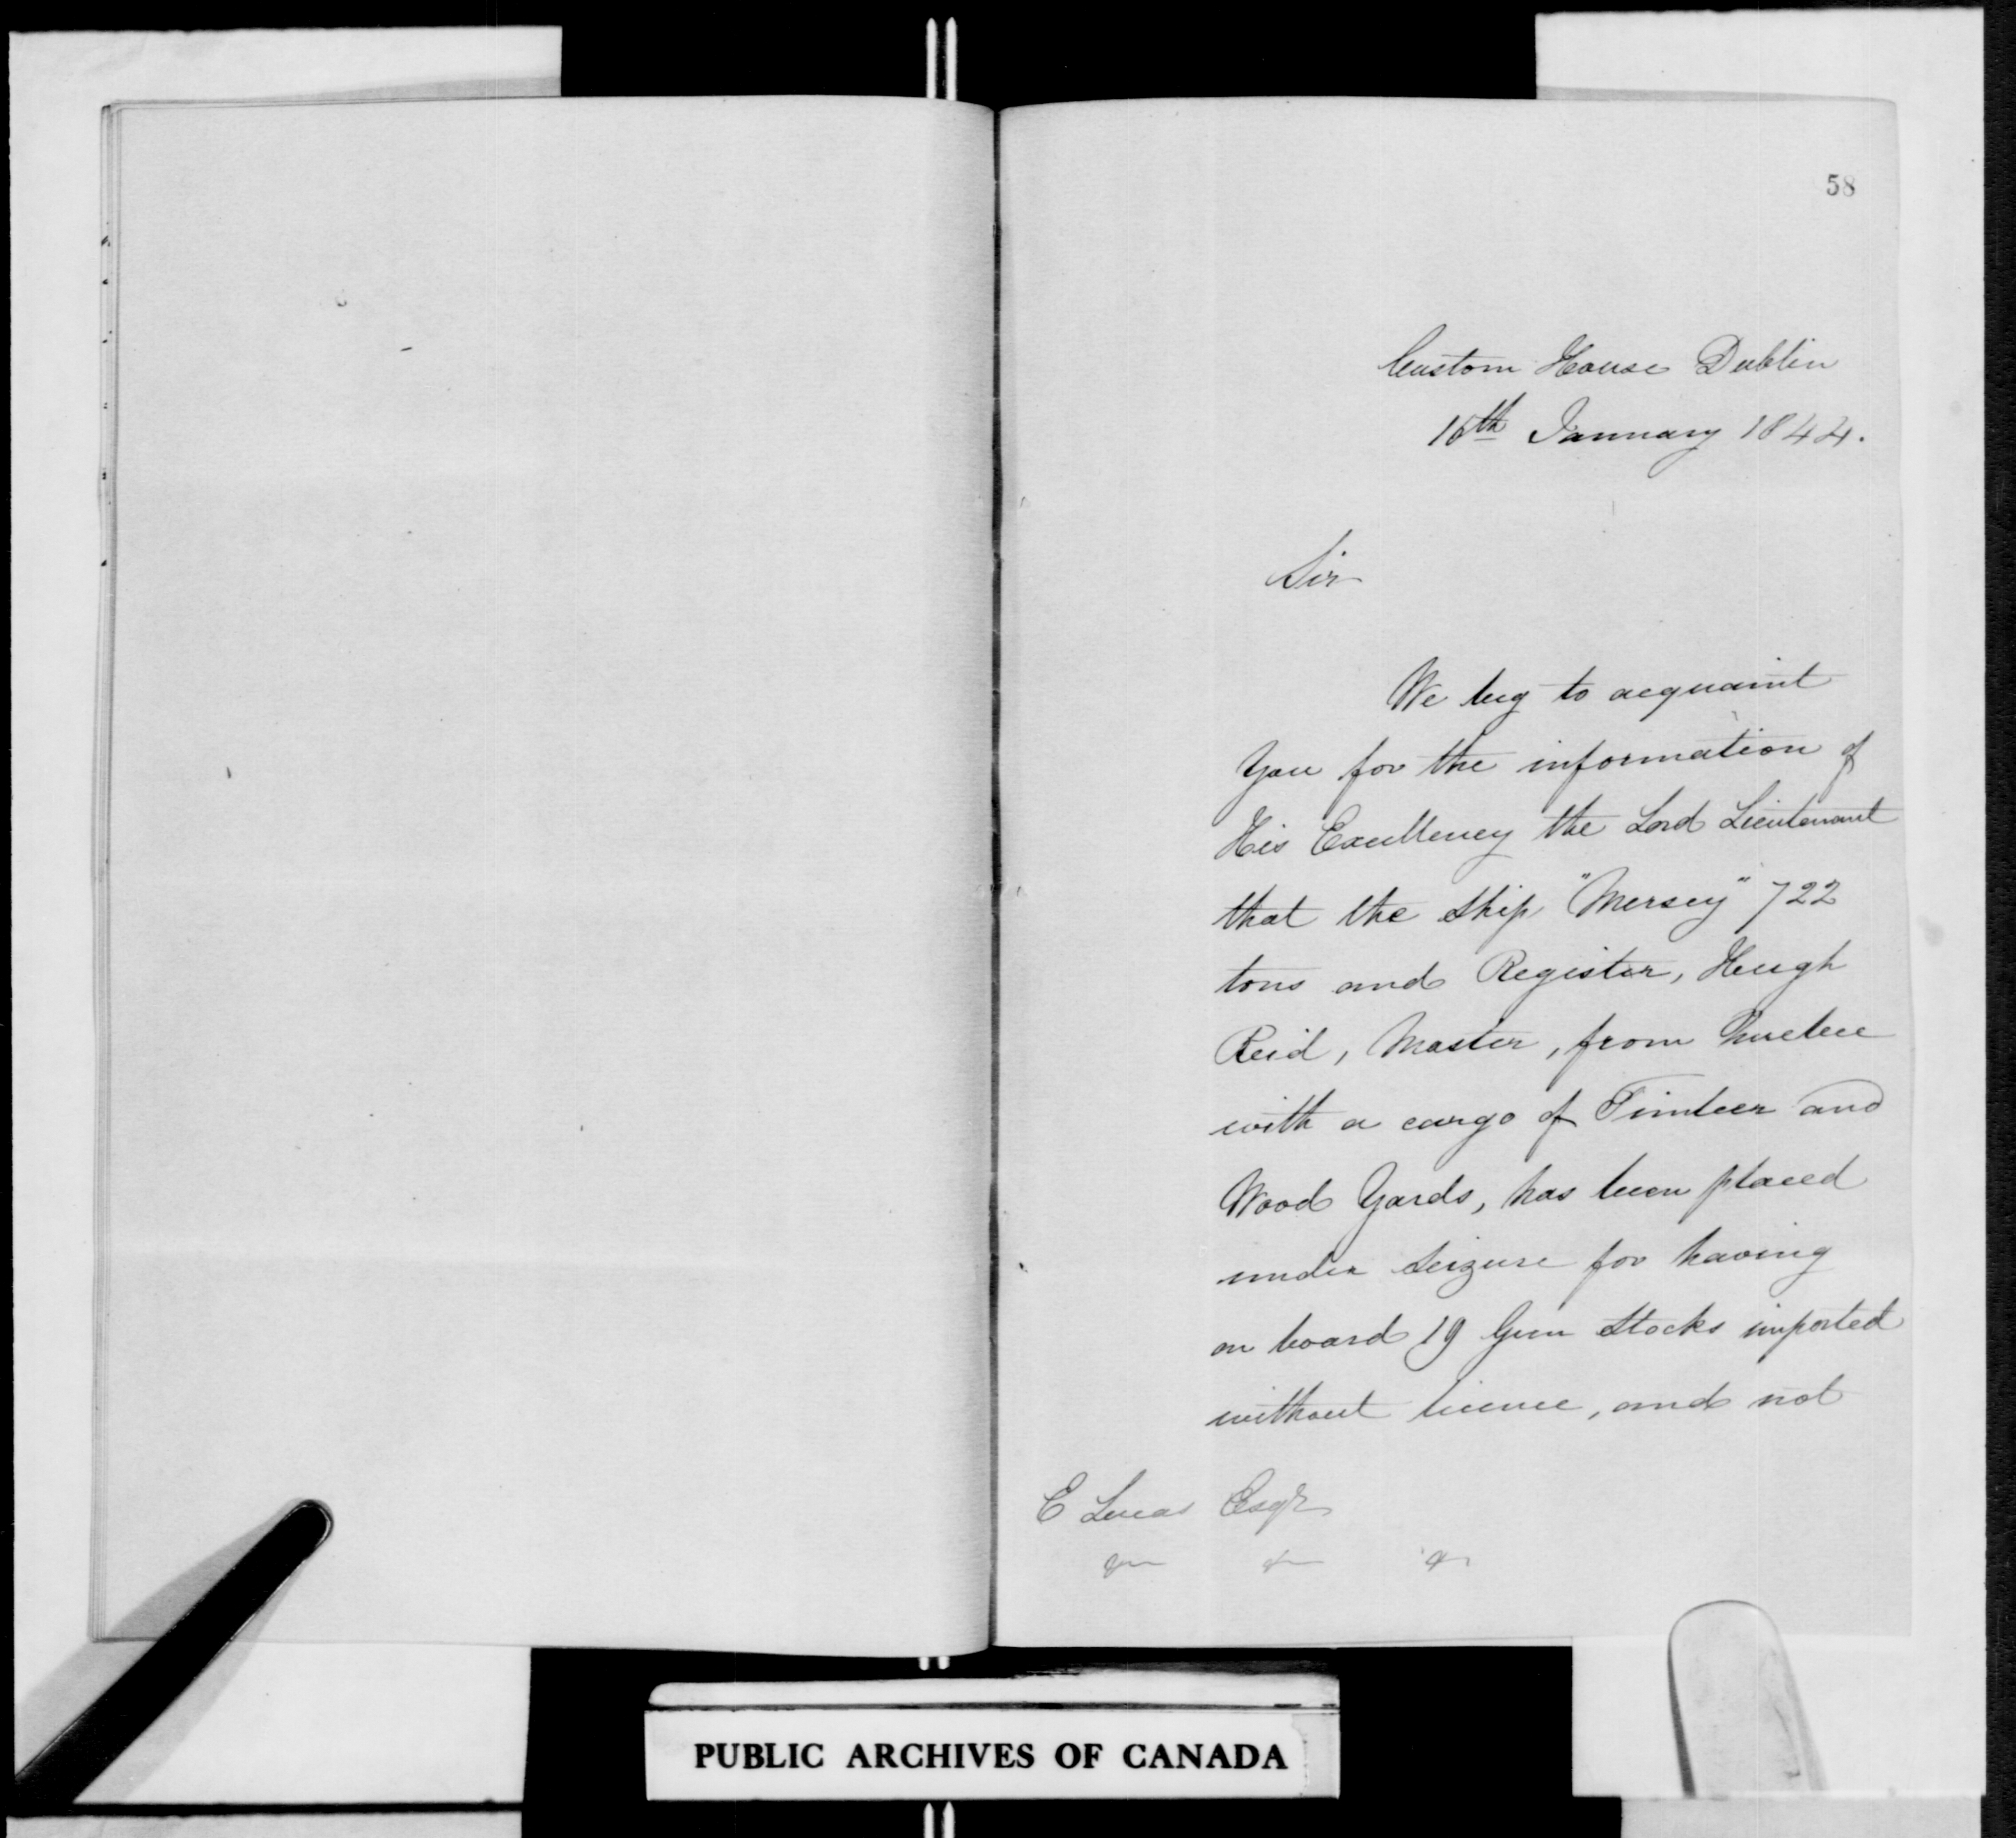 58
Custom House Dublin
16th January 1844.
Sir
We beg to acquaint
you for the information of
His Excellency the Lord Lieutenant
that the Ship "Mersey" 722
tons and Register, Hugh
Reid, Master, from Quebec
with a cargo of Timber and
Wood Yards, has been placed
under seizure for having
on board 19 Gun Stocks imported
without licence, and not
E Lucas Esqr
PUBLIC ARCHIVES OF CANADA